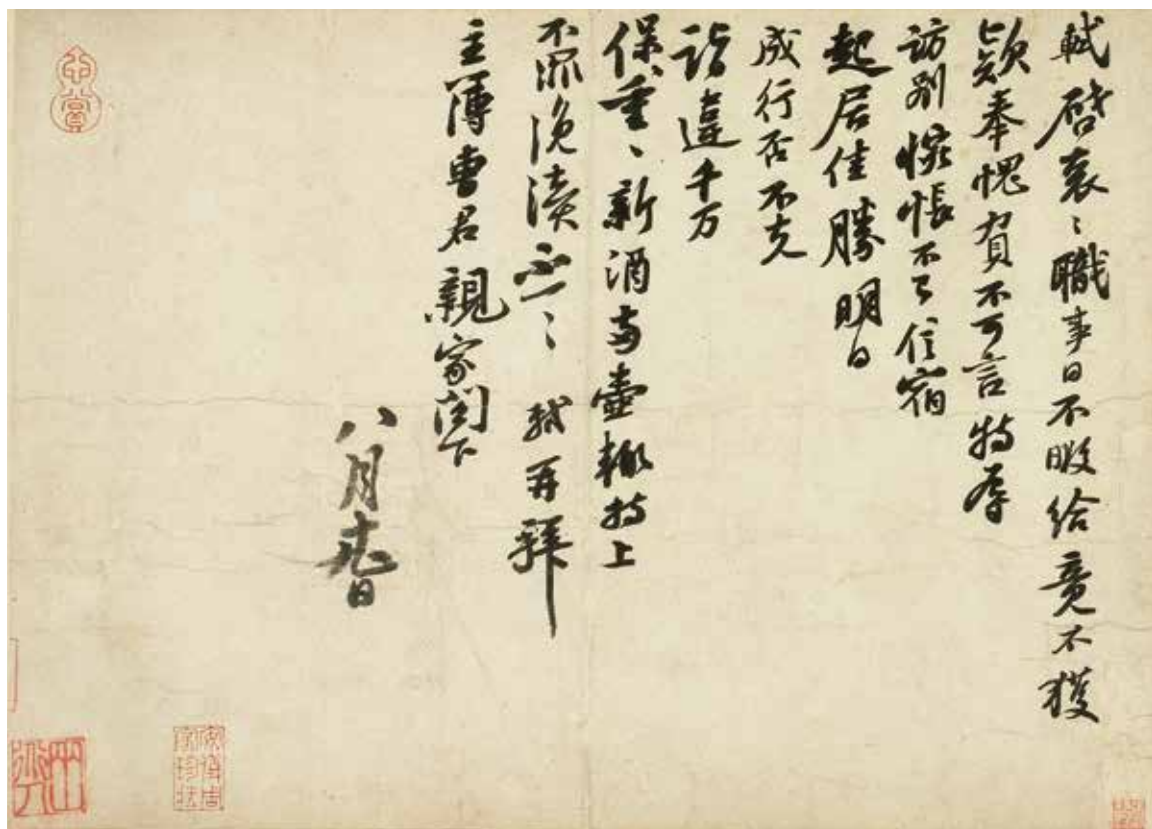 軾啓衮〻職事日不暇給竟不獲
款奉愧負不可言特辱
訪別惋悵不已信宿
起居佳勝明日
成行否不克
詣違千万
保〻重〻新酒兩壺輒持上
不罪浼瀆不一〻 軾再拜
主簿曹君親家閤下
八月日
安儀周家珍藏